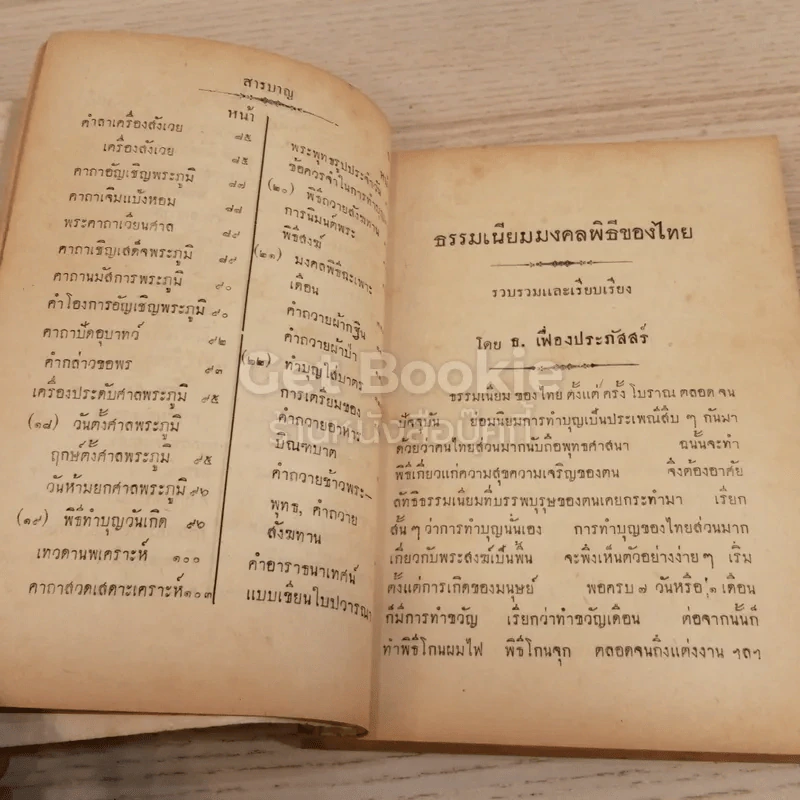 สารบาญ
หน้า
คำถาเครื่องสังเวย ๘๕
เครื่องสังเวย ๘๕
คาถาอัญเชิญพระภูมิ ๘๗
คาถาเจิมแป้งหอม ๘๘
พระคาถาเวียนศาล ๘๙
คาถาเชิญเสด็จพระภูมิ ๘๙
คาถานมัสการพระภูมิ ๙๐
คำโองการอัญเชิญพระภูมิ ๙๐
คาถาปัดอุบาทว์ ๙๒
คำกล่าวขอพร ๙๓
เครื่องประดับศาลพระภูมิ ๙๕
(๑๘) วันตั้งศาลพระภูมิ
ฤกษ์ตั้งศาลพระภูมิ ๙๕
วันห้ามยกศาลพระภูมิ ๙๖
(๑๙) พิธีทำบุญวันเกิด ๙๖
เทวดานพเคราะห์ ๑๐๐
คาถาสวดเสดาะเคราะห์ ๑๐๓
พระพุทธรูปประจำวัน
ข้อควรจำในการทำบุญ
(๒๐) พิธีถวายสังฆทาน
การนิมนต์พระ
พิธีสงฆ์
(๒๑) มงคลพิธีฉะเพาะ
เดือน
คำถวายผ้ากฐิน
คำถวายผ้าป่า
(๒๒) ทำบุญใส่บาตร
การเตรียมของ
คำถวายอาหาร
บิณฑบาต
คำถวายข้าวพระ–
พุทธ, คำถวาย
สังฆทาน
คำอาราธนาเทศน์
แบบเขียนใบปวารณา
ธรรมเนียมมงคลพิธีของไทย
รวบรวมและเรียบเรียง
โดย ธ. เฟื่องประภัสสร์
ธรรมเนียมของไทย ตั้งแต่ ครั้ง โบราณ ตลอด จน
ปัจจุบัน ย่อมนิยมการทำบุญเป็นประเพณีสืบ ๆ กันมา
ด้วยว่าคนไทยส่วนมากนับถือพุทธศาสนา ฉนั้นจะทำ
พิธีเกี่ยวแก่ความสุขความเจริญของตน จึงต้องอาศัย
ลัทธิธรรมเนียมที่บรรพบุรุษของตนเคยกระทำมา เรียก
สั้น ๆ ว่าการทำบุญนั่นเอง การทำบุญของไทยส่วนมาก
เกี่ยวกับพระสงฆ์เป็นพื้น จะพึงเห็นตัวอย่างง่าย ๆ เริ่ม
ตั้งแต่การเกิดของมนุษย์ พอครบ ๗ วันหรือ ๑ เดือน
ก็มีการทำขวัญ เรียกว่าทำขวัญเดือน ต่อจากนั้นก็
ทำพิธีโกนผมไฟ พิธีโกนจุก ตลอดจนถึงแต่งงาน ฯลฯ
Get Bookie
ร้านหนังสือบุ๊คกี้